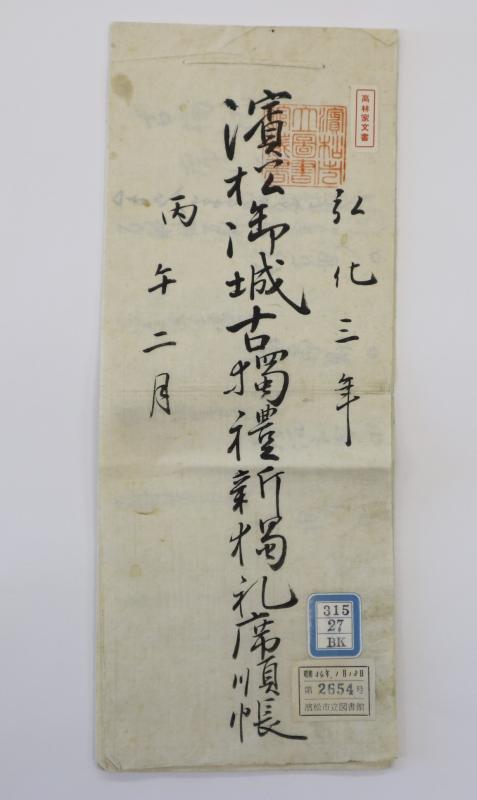 高林家文書
濱松市
立圖書
館藏書
弘化三年
濱松御城古獨禮新獨礼席順帳
丙午二月
315
27
BK
第2654号
浜松市立図書館